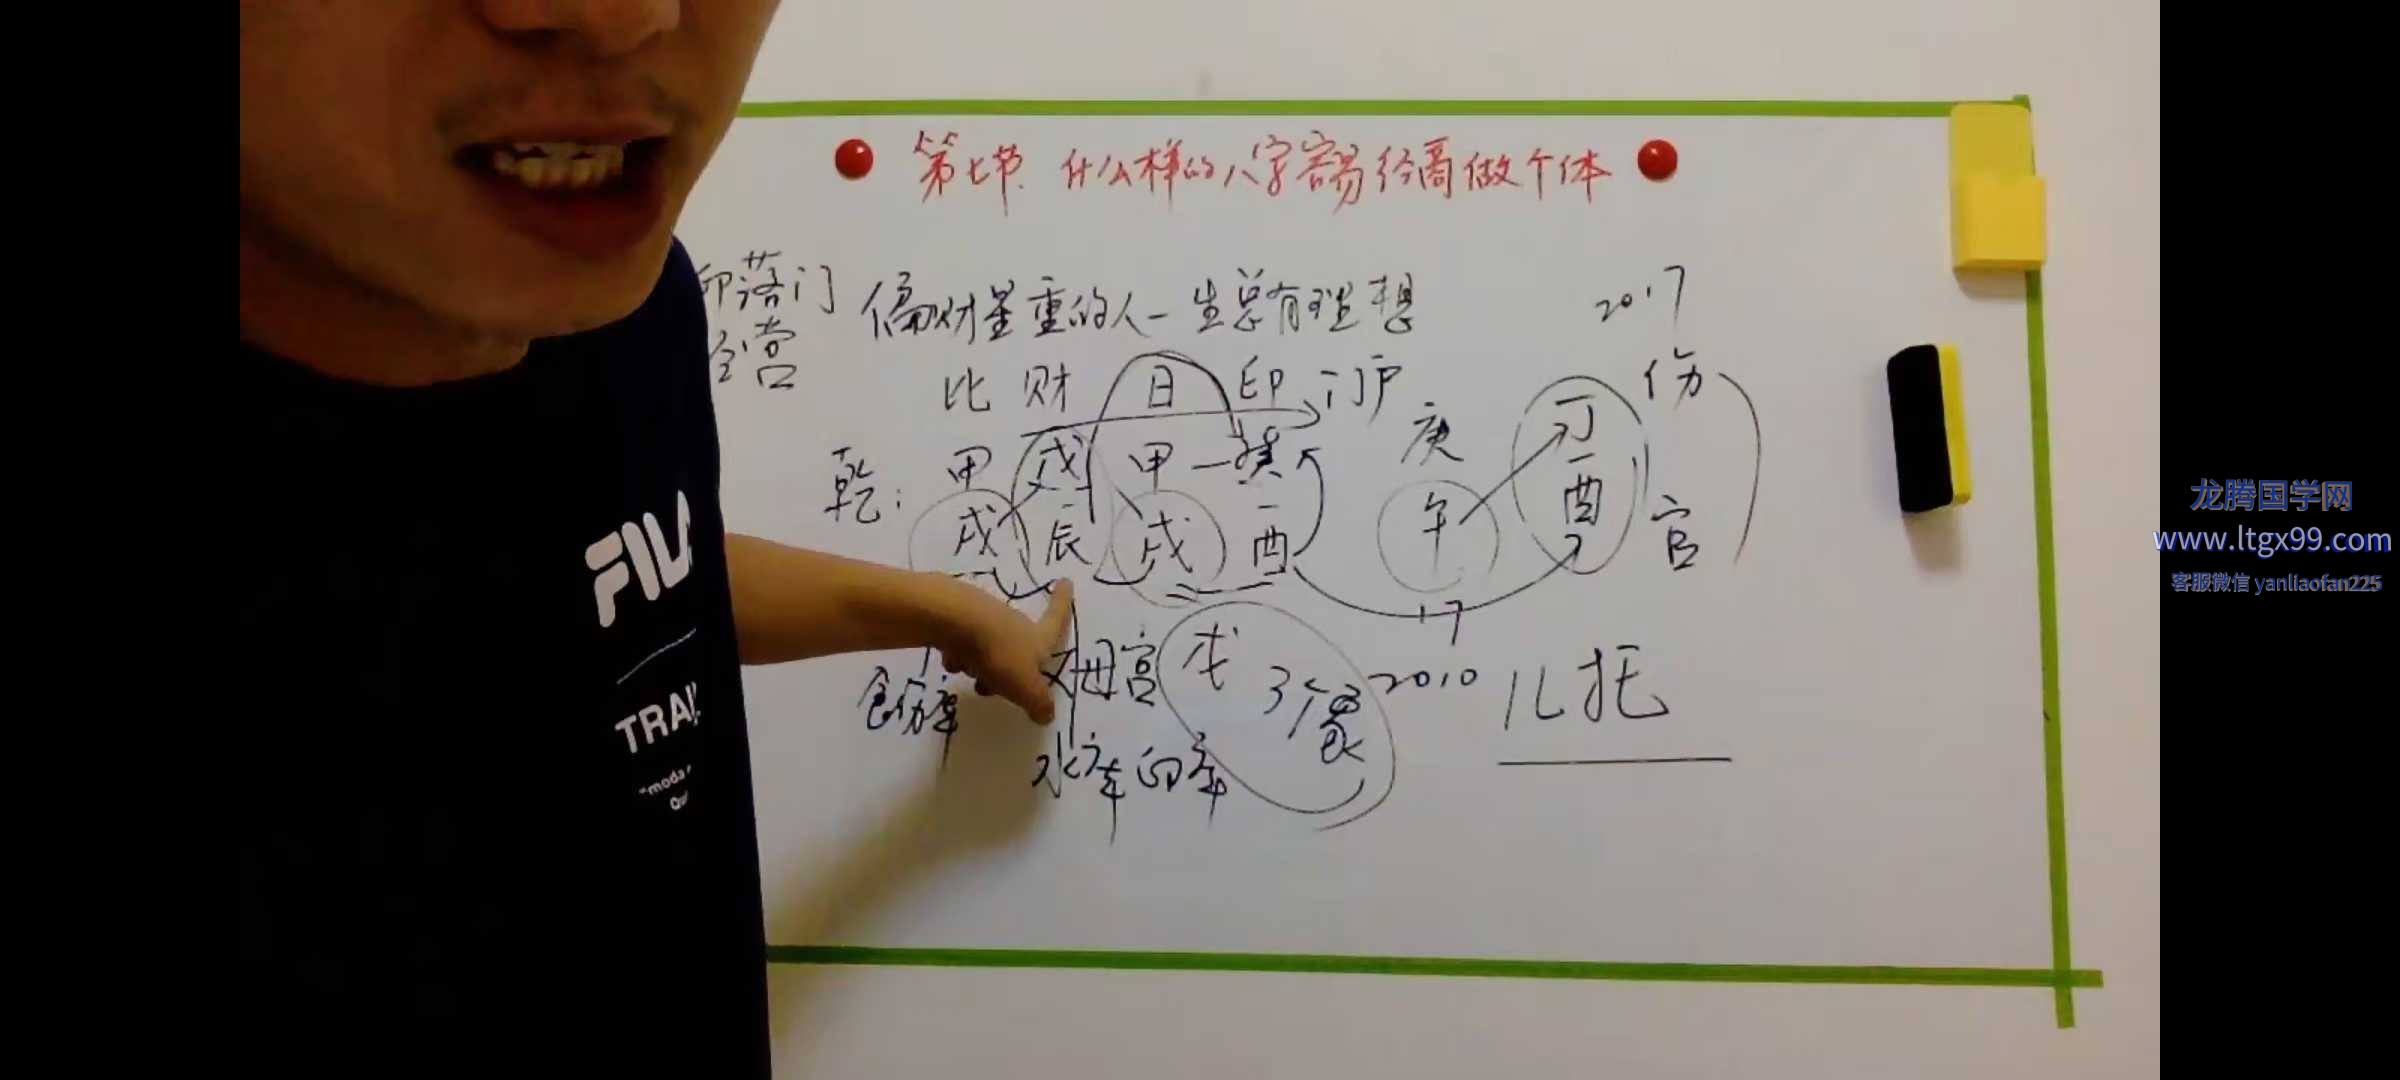 第七节. 什么样的八字容易经商做个体
印落门
经营
偏财星重的人一生总有理想
2017
比 财 日 印 门户
伤官
乾: 甲 戊 甲 癸 庚 丁
戌 辰 戌 酉 午 酉
17
食伤库
父母宫
3个家
2010
儿托
水库 印库
FILA
TRAI
"moda
龙腾国学网
www.ltgx99.com
客服微信 yanliaofan225